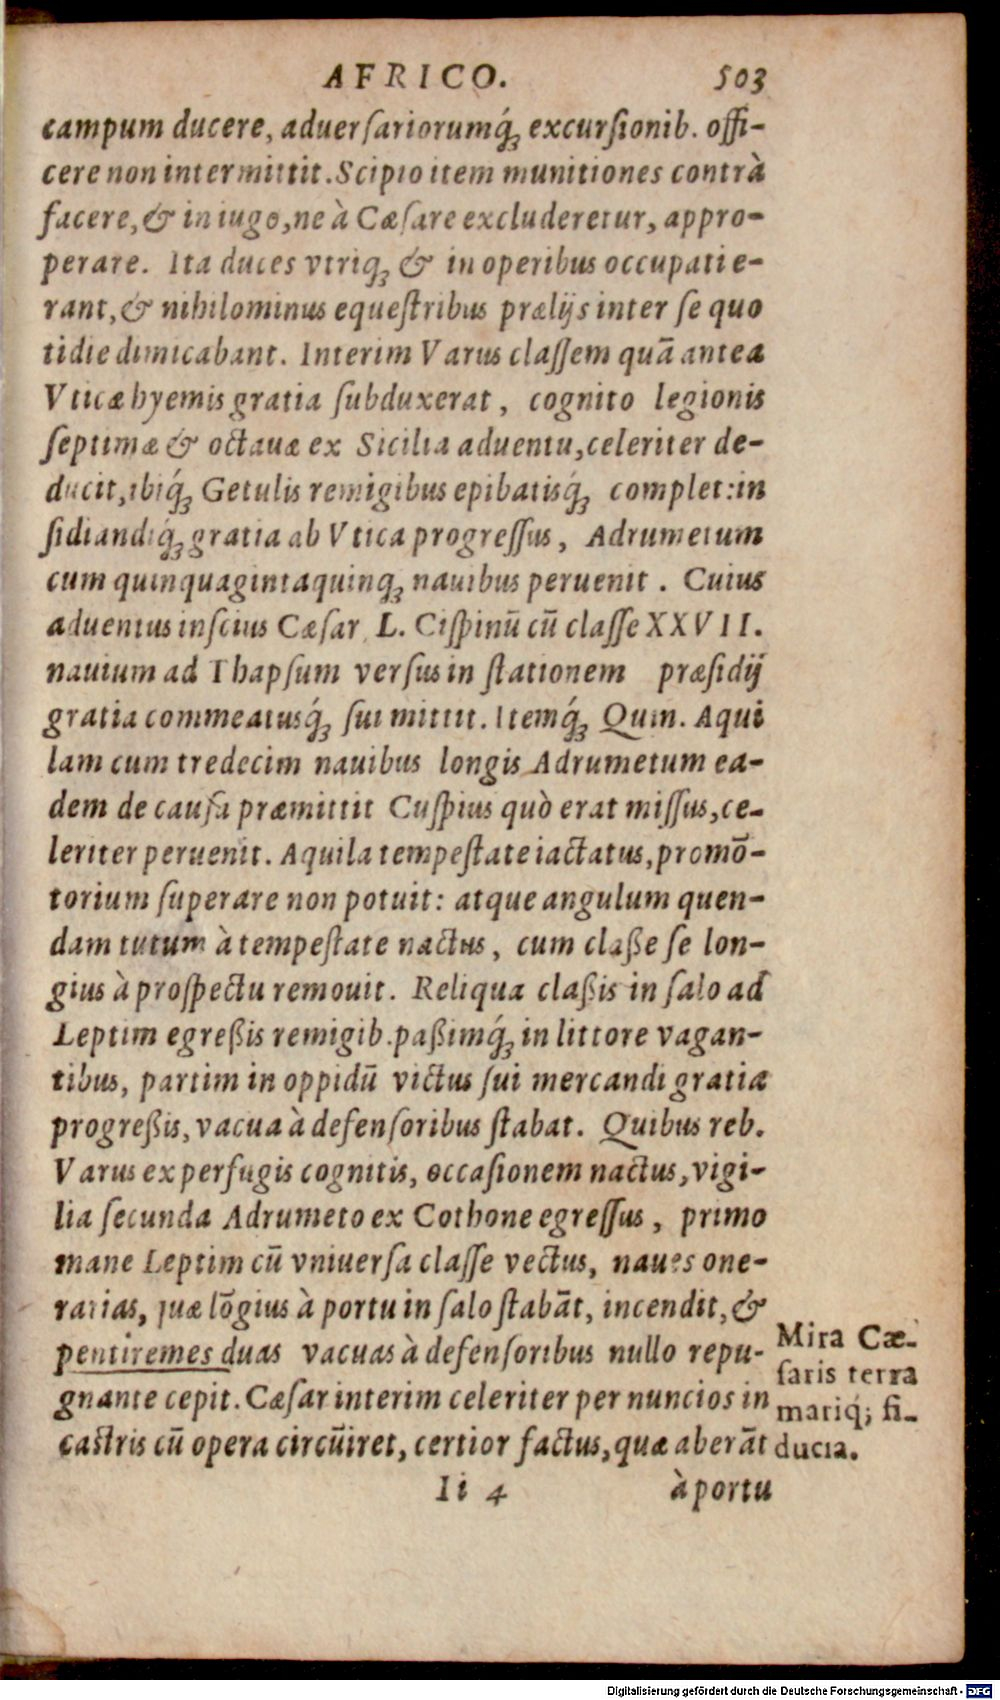 AFRICO. 503
campum ducere, aduersariorumq́; excursionib. offi-
cere non intermittit. Scipio item munitiones contrà
facere, & in iugo, ne à Cæsare excluderetur, appro-
perare. Ita duces vtriq; & in operibus occupati e-
rant, & nihilominus equestribus prælijs inter se quo
tidie dimicabant. Interim Varus classem quā antea
Vticæ hyemis gratia subduxerat, cognito legionis
septimæ & octauæ ex Sicilia aduentu, celeriter de-
ducit, ibiq́; Getulis remigibus epibatisq́; complet: in
sidiandiq́; gratia ab Vtica progressus, Adrumetum
cum quinquagintaquinq; nauibus peruenit. Cuius
aduentus inscius Cæsar, L. Cispinū cū classe XXVII.
nauium ad Thapsum versus in stationem præsidij
gratia commeatusq́; sui mittit. Itemq́; Quin. Aqui
lam cum tredecim nauibus longis Adrumetum ea-
dem de causa præmittit Cuspius quò erat missus, ce-
leriter peruenit. Aquila tempestate iactatus, promō-
torium superare non potuit: atque angulum quen-
dam tutum à tempestate nactus, cum claße se lon-
gius à prospectu remouit. Reliqua claßis in salo ad
Leptim egreßis remigib. paßimq́; in littore vagan-
tibus, partim in oppidū victus sui mercandi gratia
progreßis, vacua à defensoribus stabat. Quibus reb.
Varus ex perfugis cognitis, occasionem nactus, vigi-
lia secunda Adrumeto ex Cothone egressus, primo
mane Leptim cū vniuersa classe vectus, naues one-
rarias, quæ lōgius à portu in salo stabāt, incendit, &
pentiremes duas vacuas à defensoribus nullo repu-
gnante cepit. Cæsar interim celeriter per nuncios in
castris cū opera circūiret, certior factus, quæ aberāt
Mira Cæ-
saris terra
mariq́; fi-
ducia.
Ii 4 à portu
Digitalisierung gefördert durch die Deutsche Forschungsgemeinschaft - DFG